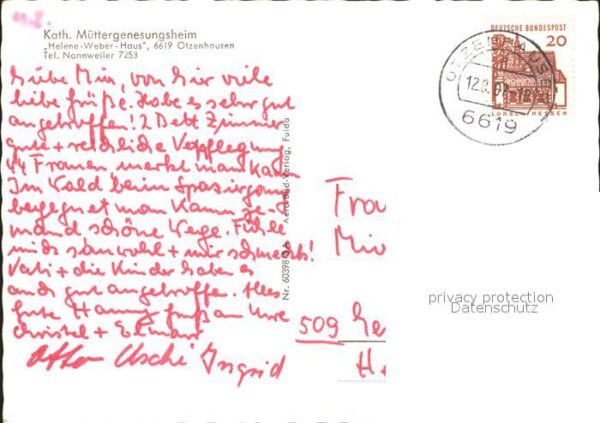 Kath. Müttergenesungsheim
„Helene-Weber-Haus", 6619 Otzenhausen
Tel. Nonnweiler 7253
DEUTSCHE BUNDESPOST
20
LORSCH HESSEN
OTZENHAUSEN
12.8.67
6619
Liebe Mia, von hier viele
liebe Grüße. Habe es sehr gut
angetroffen! 2 Bett Zimmer
gute + reichliche Verpflegung
44 Frauen merkt man kaum
Im Wald beim Spazierengehen
begegnet man kaum je-
mand schöne Wege. Fühle
mich sauwohl + mir schmeckts!
Vati + die Kinder haben es
auch gut angetroffen. Alles
gute Hanny Gruß an Uwe
Christel +
Otto Uschi Ingrid
Nr. 60398 Aero-Bild-Verlag, Fulda
Frau
509
privacy protection
Datenschutz